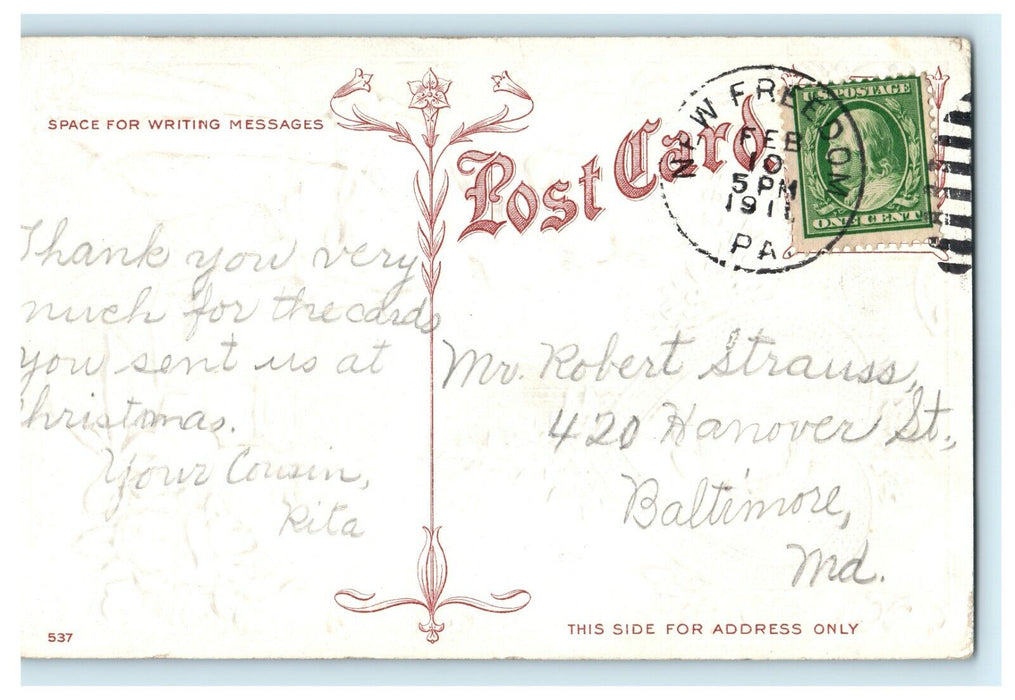 SPACE FOR WRITING MESSAGES
Post Card.
NEW FREEDOM
FEB
10
5 PM
1911
PA.
U.S. POSTAGE
ONE CENT
Thank you very
much for the cards
you sent us at
Christmas.
Your Cousin,
Rita
Mr. Robert Strauss,
420 Hanover St.,
Baltimore,
Md.
537
THIS SIDE FOR ADDRESS ONLY